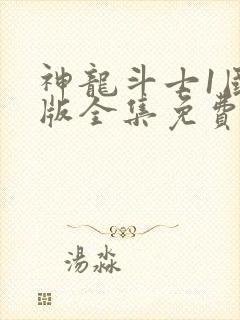 神龍斗士1
版全集免費
湯淼